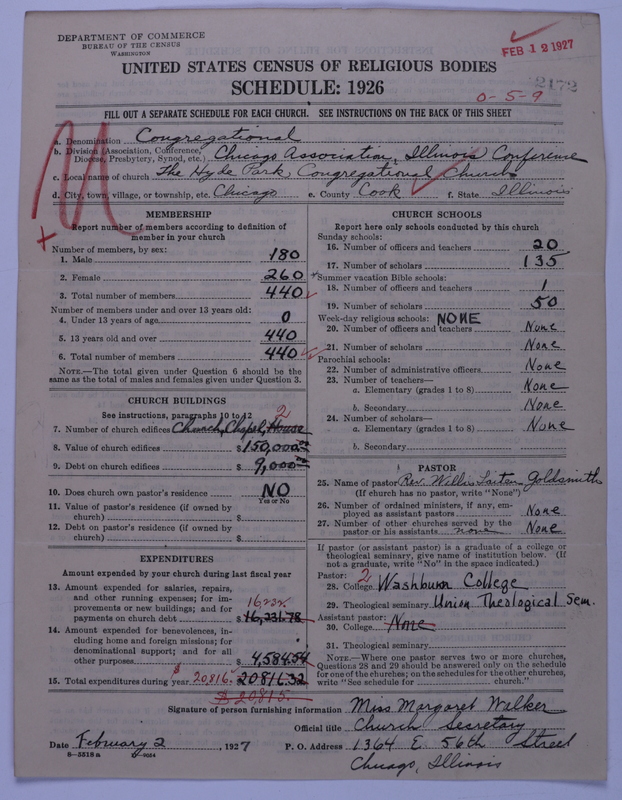 DEPARTMENT OF COMMERCE
BUREAU OF THE CENSUS
WASHINGTON
FEB 12 1927
UNITED STATES CENSUS OF RELIGIOUS BODIES
2172
SCHEDULE: 1926
0-5-9
FILL OUT A SEPARATE SCHEDULE FOR EACH CHURCH. SEE INSTRUCTIONS ON THE BACK OF THIS SHEET
M
a. Denomination Congregational
b. Division (Association, Conference, Diocese, Presbytery, Synod, etc.) Chicago Association, Illinois Conference
c. Local name of church The Hyde Park Congregational Church
d. City, town, village, or township, etc. Chicago e. County Cook f. State Illinois
MEMBERSHIP
Report number of members according to definition of
member in your church
Number of members, by sex:
1. Male 180
2. Female 260
3. Total number of members 440
Number of members under and over 13 years old:
4. Under 13 years of age 0
5. 13 years old and over 440
6. Total number of members 440
NOTE.—The total given under Question 6 should be
same as the total of males and females given under Question 3.
CHURCH BUILDINGS
See instructions, paragraphs 10 to 12
2
7. Number of church edifices Church, Chapel, House
8. Value of church edifices $150,000.00
9. Debt on church edifices $9,000.00
10. Does church own pastor's residence NO
Yes or No
11. Value of pastor's residence (if owned by
church) $
12. Debt on pastor's residence (if owned by
church) $
EXPENDITURES
Amount expended by your church during last fiscal year
13. Amount expended for salaries, repairs,
and other running expenses; for im-
provements or new buildings; and for
16,232.
payments on church debt $16,231.78
14. Amount expended for benevolences, in-
cluding home and foreign missions; for
denominational support; and for all
other purposes 4,584.54
15. Total expenditures during year $20816. 20816.32
$20815.
CHURCH SCHOOLS
Report here only schools conducted by this church
Sunday schools:
16. Number of officers and teachers 20
17. Number of scholars 135
Summer vacation Bible schools:
18. Number of officers and teachers 1
19. Number of scholars 50
Week-day religious schools: NONE
20. Number of officers and teachers None
21. Number of scholars None
Parochial schools:
22. Number of administrative officers None
23. Number of teachers—
a. Elementary (grades 1 to 8) None
b. Secondary None
24. Number of scholars—
a. Elementary (grades 1 to 8) None
b. Secondary
PASTOR
25. Name of pastor Rev. Willis Goldsmith
(If church has no pastor, write "None")
26. Number of ordained ministers, if any, em-
ployed as assistant pastors None
27. Number of other churches served by the
pastor or his assistants none None
If pastor (or assistant pastor) is a graduate of a college or
theological seminary, give name of institution below. (If
not a graduate, write "No" in the space indicated.)
Pastor: 2
28. College Washburn College
29. Theological seminary Union Theological Sem.
Assistant pastor:
30. College None
31. Theological seminary
NOTE.—Where one pastor serves two or more churches,
Questions 28 and 29 should be answered only on the schedule
for one of the churches; on the schedules for the other churches,
write "See schedule for church."
Signature of person furnishing information Miss Margaret Walker
Official title Church Secretary
Date February 2, 1927 P. O. Address 1364 E. 56th Street
8-5518a
Chicago, Illinois